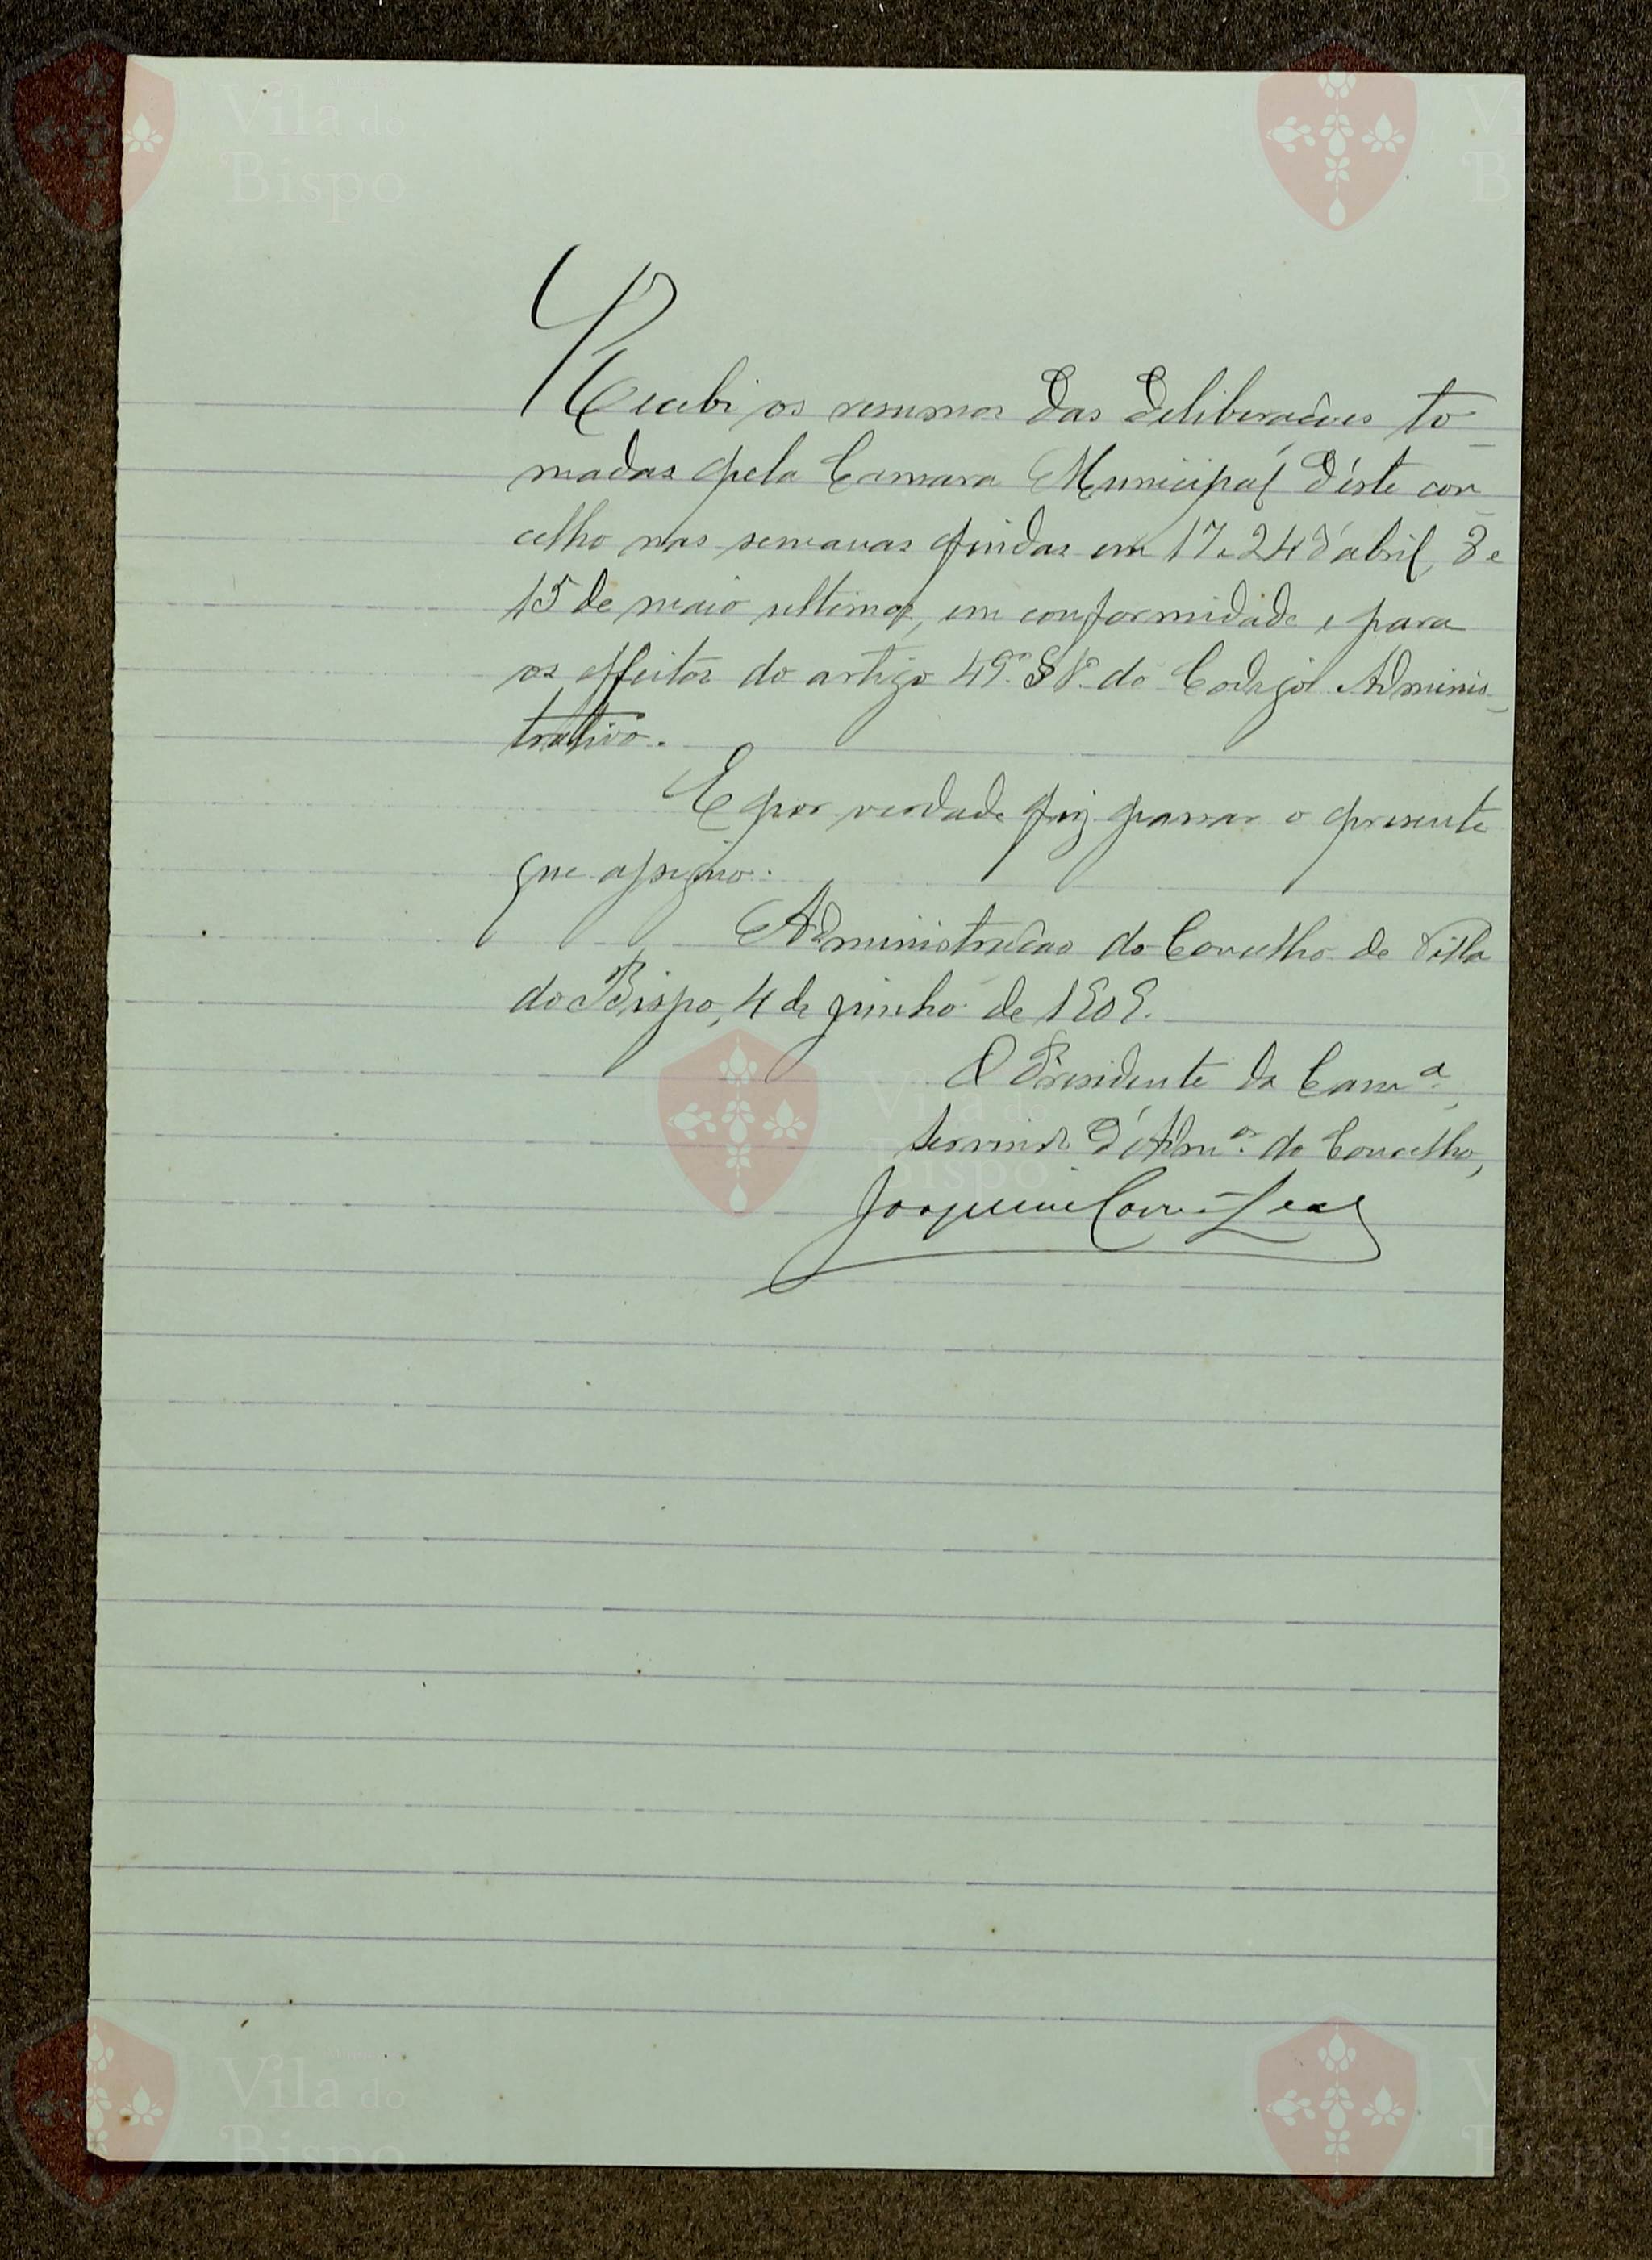 Recebi os resumos das deliberações to-
madas pela Camara Municipal d'este con-
celho nas semanas findas em 17 e 24 d'abril, 8 e
15 de maio ultimo, em conformidade e para
os effeitos do artigo 49.º § 1.º do Codigo Adminis-
trativo.
E por verdade fiz passar o presente
que assigno.
Administração do Concelho de Villa
do Bispo, 4 de junho de 1909.
O Presidente da Cam.ª,
servindo d'Adm.or do Concelho,
Joaquim Leal
Vila do
Bispo
Vila do
Bispo
Vila do
Bispo